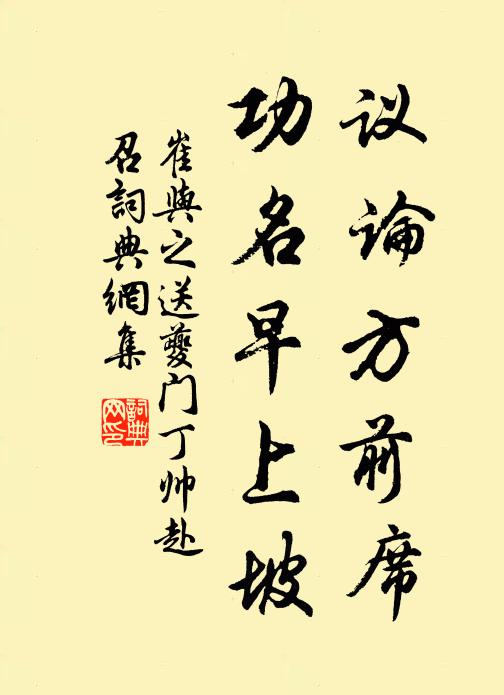 议论方前席
功名早上坡
崔与之送夔门丁帅赴
召词典网集
词典
网印